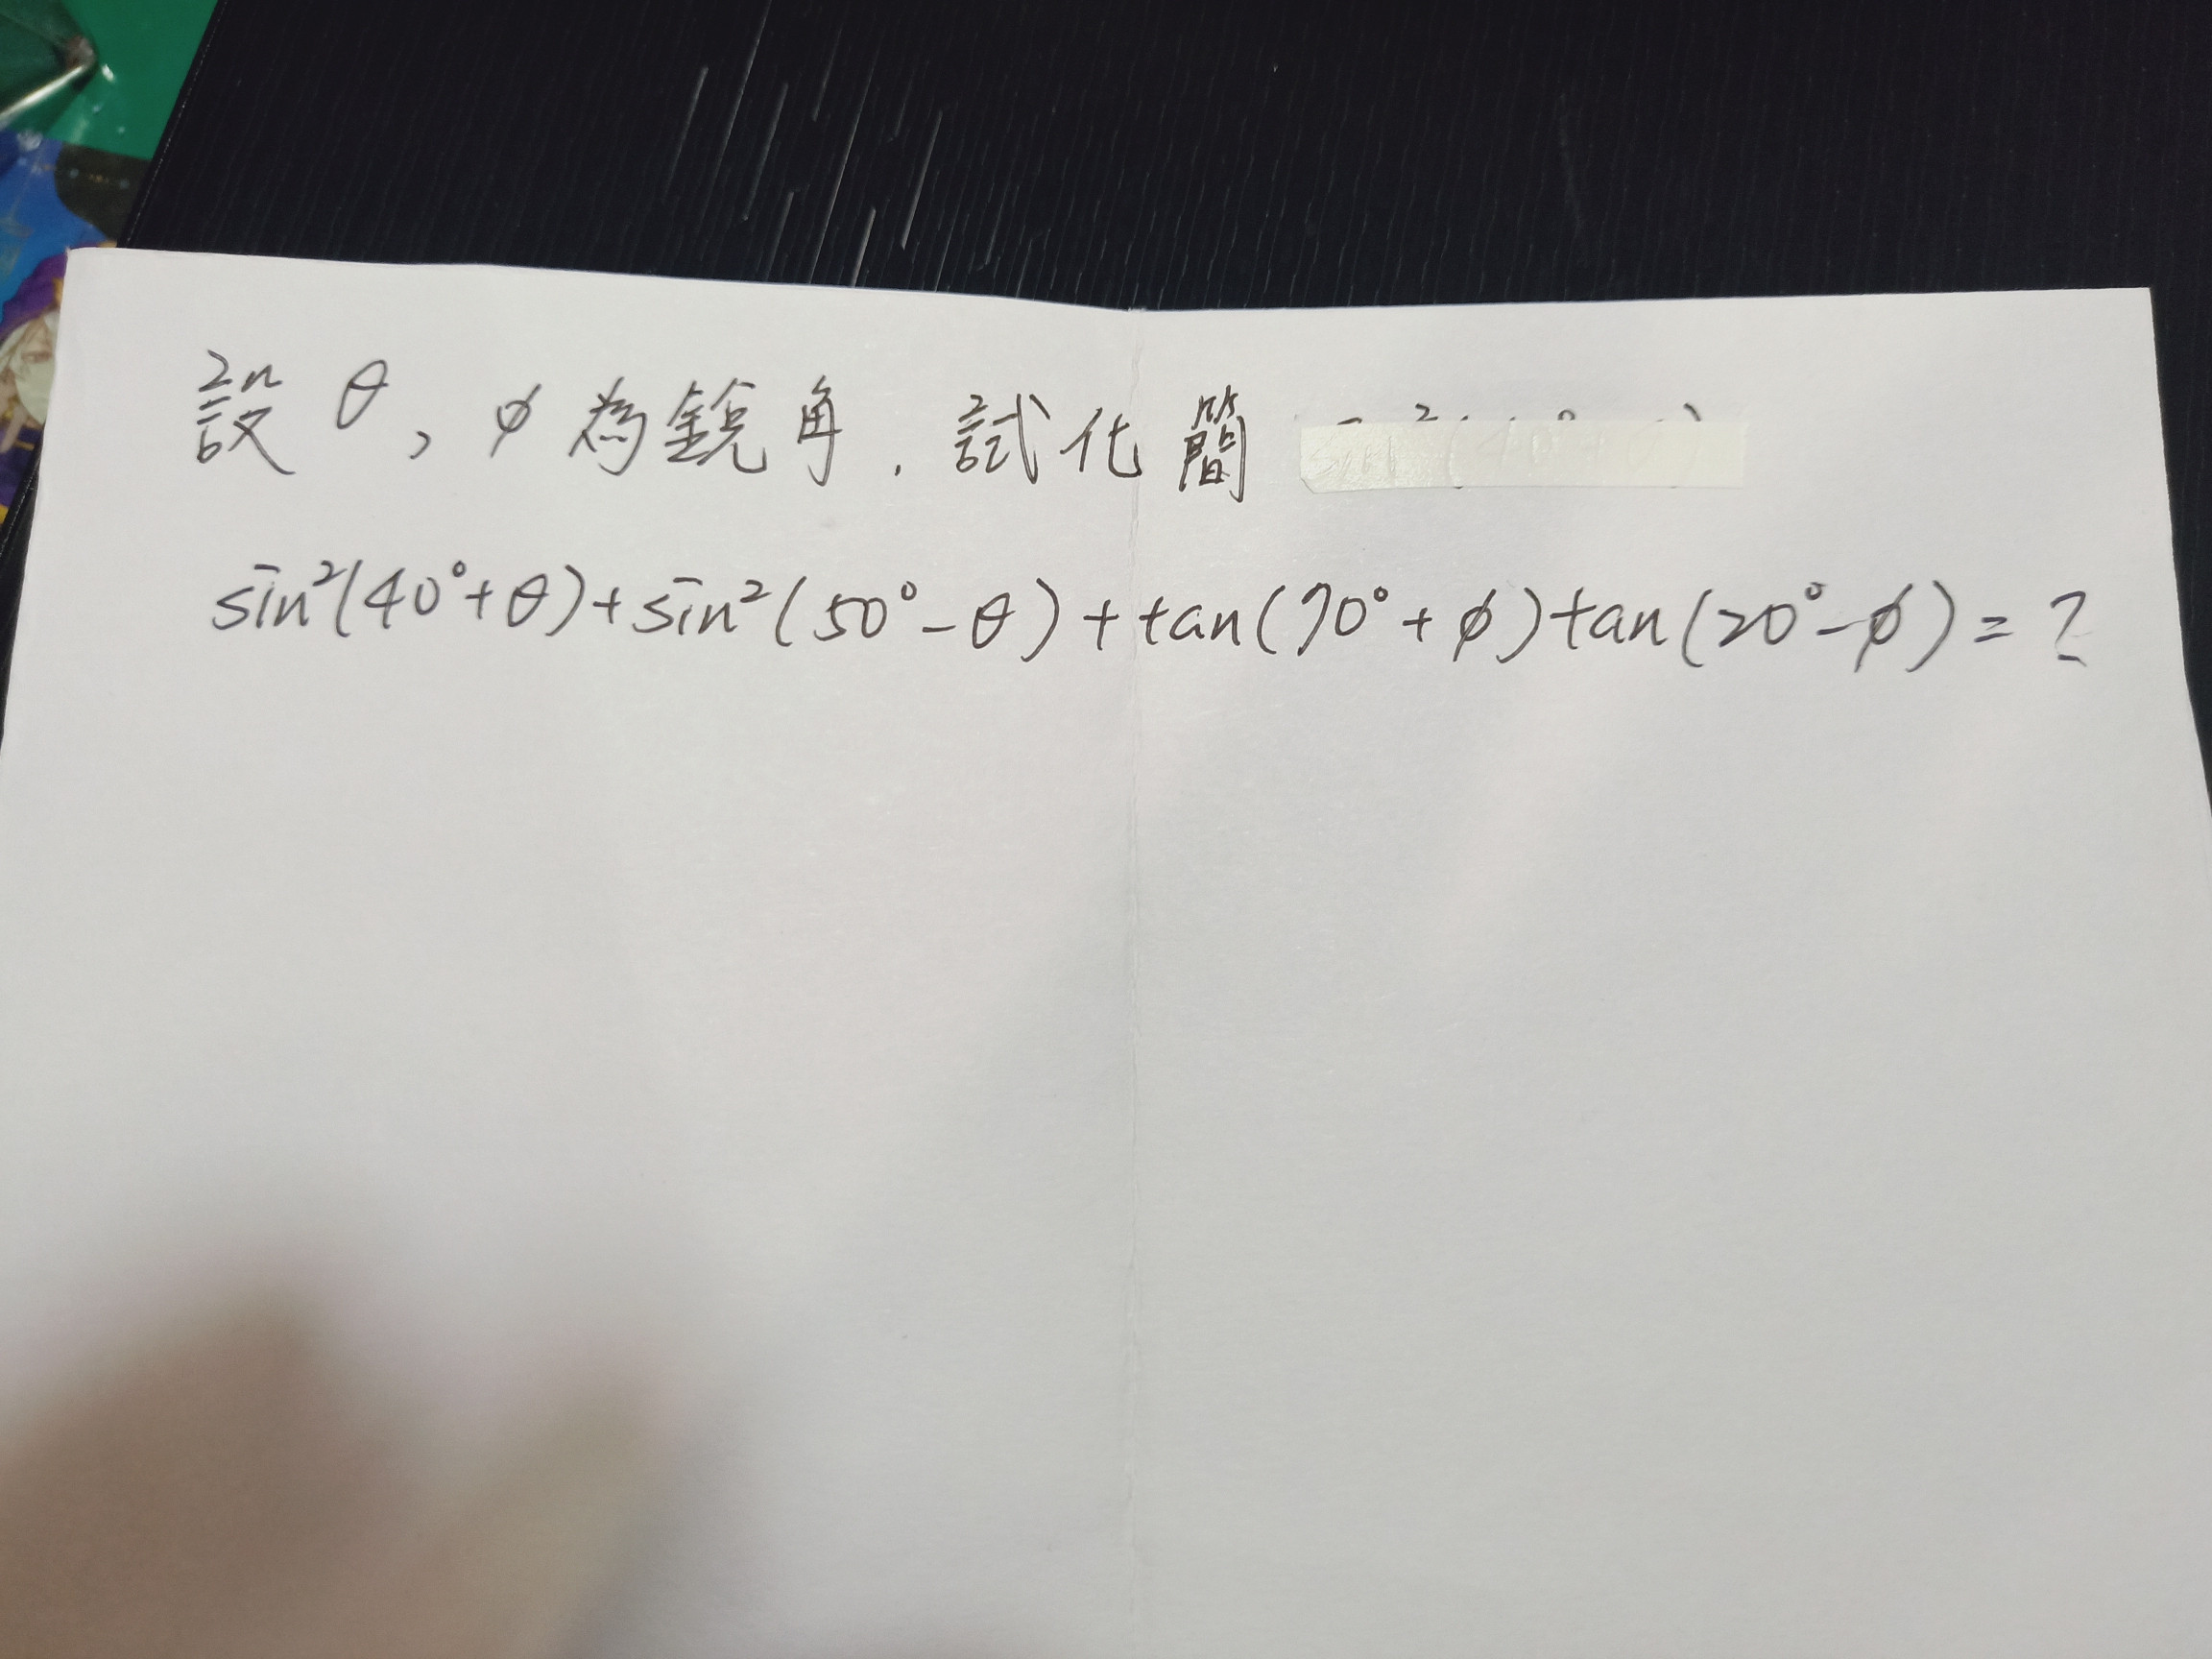 設 θ, φ為銳角. 試化簡
sin²(40°+θ)+sin²(50°-θ)+tan(70°+φ)tan(20°-φ)=?